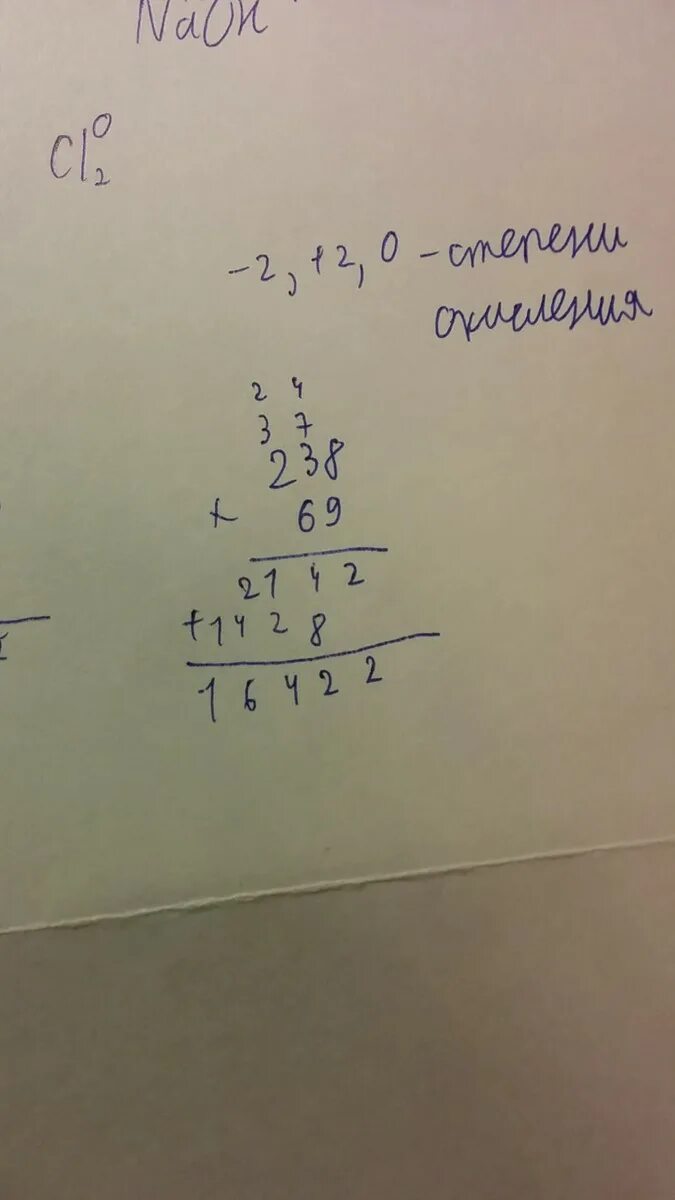 NaOH
Cl₂⁰
-2, +2, 0 - степени
окисления
2 4
3 7
238
× 69
2142
+1428
16422